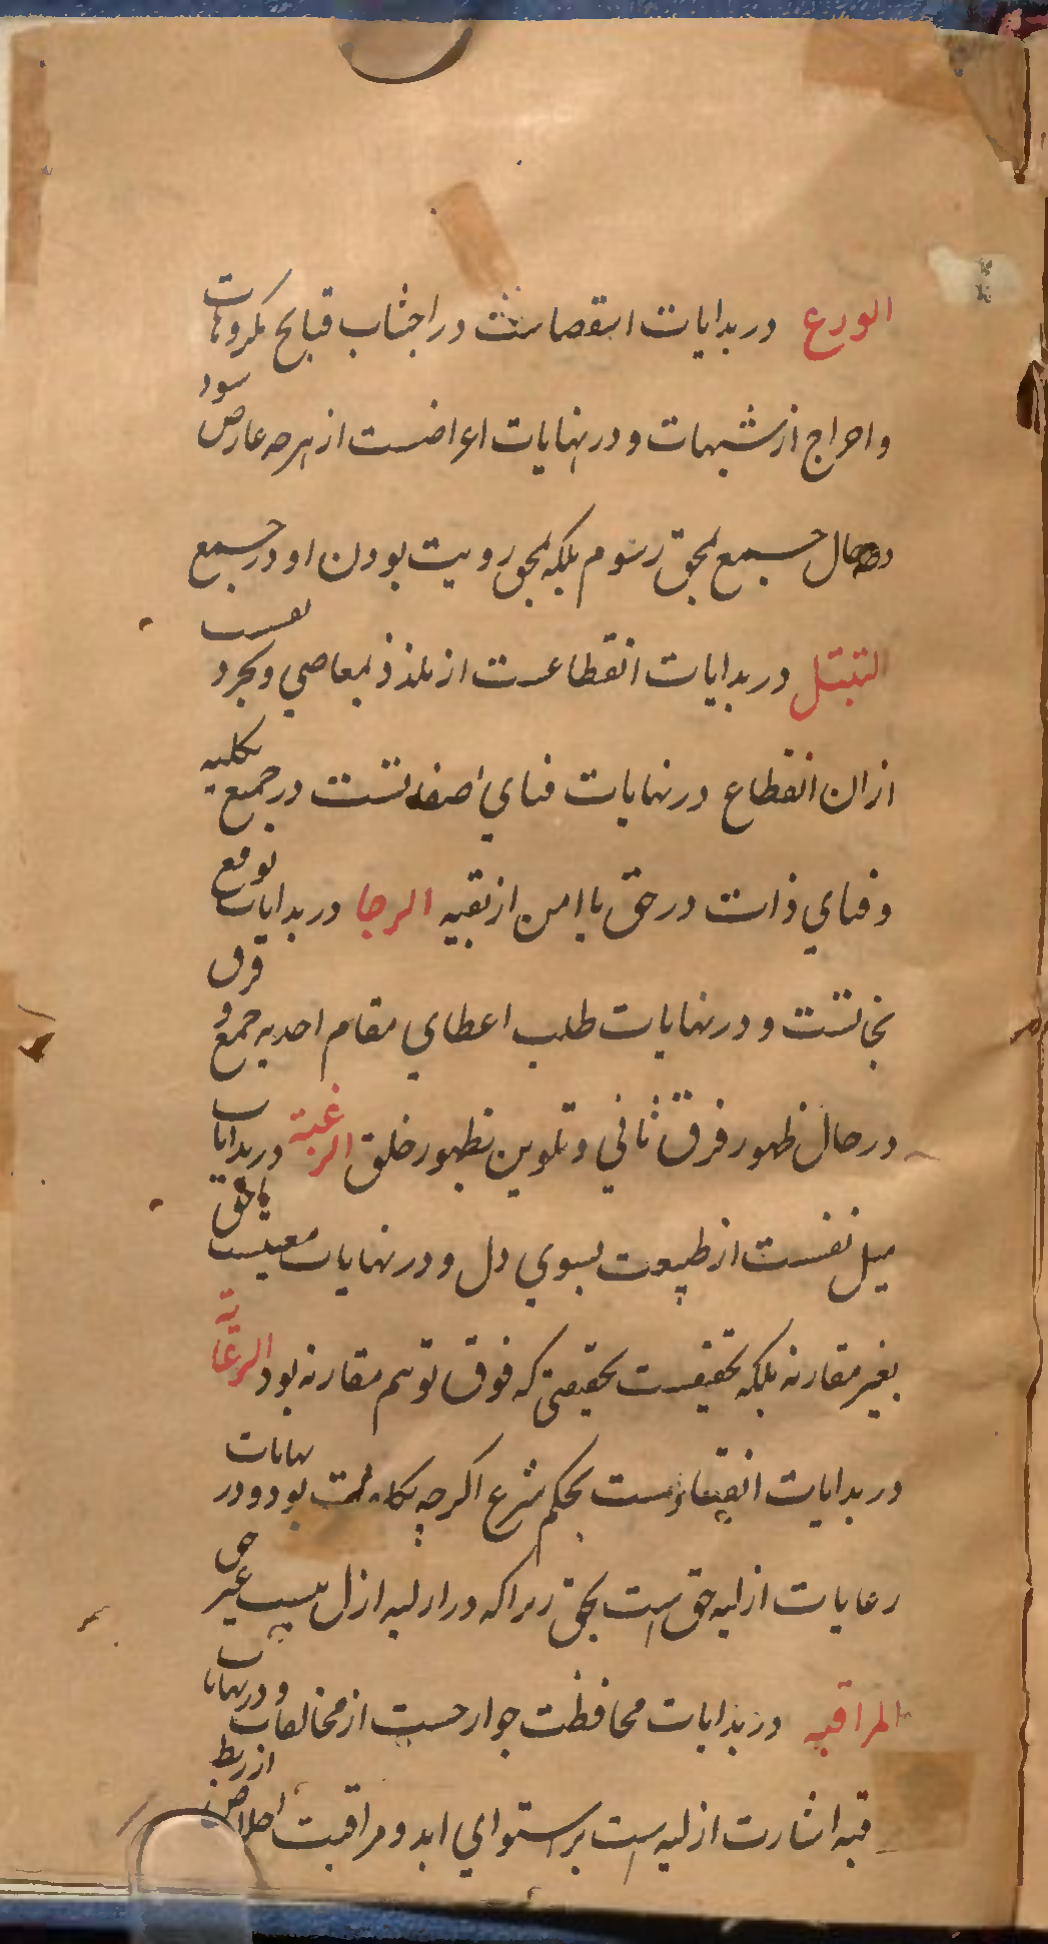 الورع در بدایات استقصاست در اجتناب قبایح مکروهات
و احراج از شبهات و در نهایات اعراضست از هرچه عارض سود
در حال جمع بحق رسوم بلکه بحق رویت بودن او در جمع
التبتل در بدایات انقطاعست از تلذذ بمعاصی و تجرد نفست
ازان انقطاع در نهایات فنای صفتست در جمع بکلیه
و فنای ذات در حق با امن از بقیه الرجا در بدایات توقع
نجاتست و در نهایات طلب اعطای مقام احدیه جمع و فرق
در حال ظهور فرق ثانی و تلوین بظهور خلق الرغبة در بدایات
میل نفست از طبیعت بسوی دل و در نهایات معیتست با حق
بغیر مقارنه بلکه تحقیقست بحقیقتی که فوق توهم مقارنه بود الرعایة
در بدایات انقیادست بحکم شرع اگرچه بود و در نهایات
رعایات ازلیه حق است بحق زیراکه در ازلیه ازل نیست غیر حق
المراقبه در بدایات محافظت جوارحست از مخالفات و در نهایات
قبه اشارت ازلیه است بر استوای ابد و مراقبت اخلاص از ربط